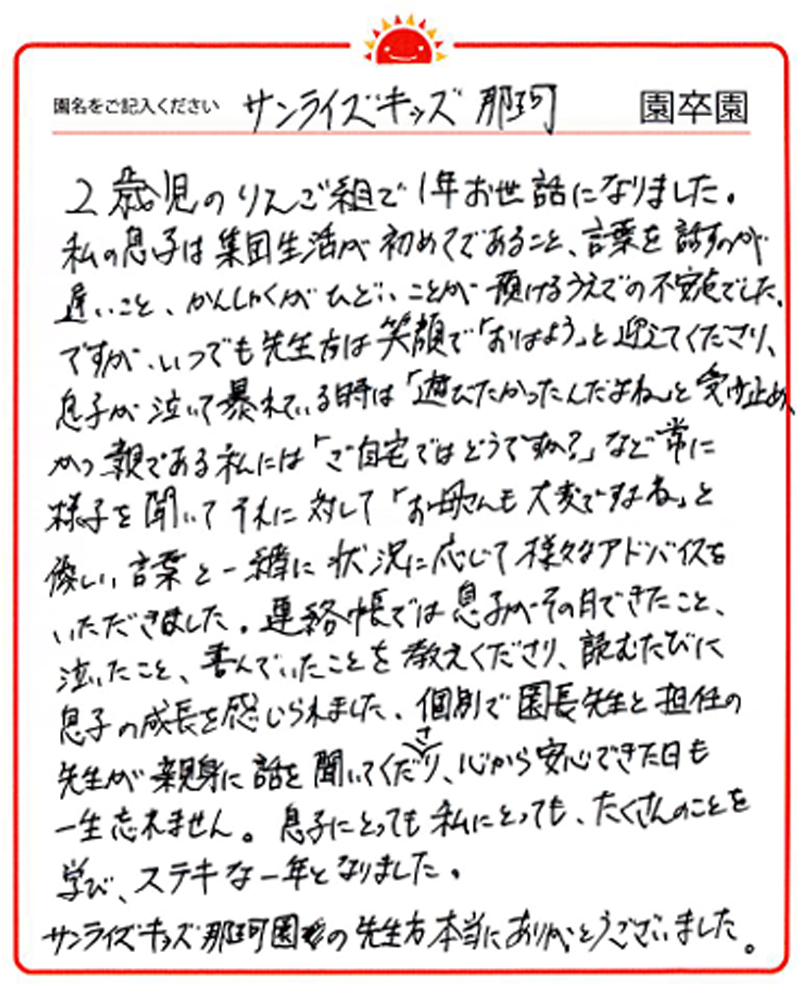 園名をご記入ください サンライズキッズ 那珂 園卒園
2歳児のりんご組で1年お世話になりました。
私の息子は集団生活が初めてであること、言葉を話すのが
遅いこと、かんしゃくがひどいことが預けるうえでの不安点でした。
ですが、いつでも先生方は笑顔で「おはよう」と迎えてくださり、
息子が泣いて暴れている時は「遊びたかったんだよね」と受け止め、
かつ親である私には「ご自宅ではどうですか?」など常に
様子を聞いてそれに対して「お母さんも大変ですよね」と
優しい言葉と一緒に状況に応じて様々なアドバイスを
いただきました。連絡帳では息子がその日できたこと、
泣いたこと、喜んでいたことを教えくださり、読むたびに
息子の成長を感じられました、個別で園長先生と担任の
先生が親身に話を聞いてくださり、心から安心できた日も
一生忘れません。息子にとっても私にとっても、たくさんのことを
学び、ステキな一年となりました。
サンライズキッズ那珂園の先生方本当にありがとうございました。